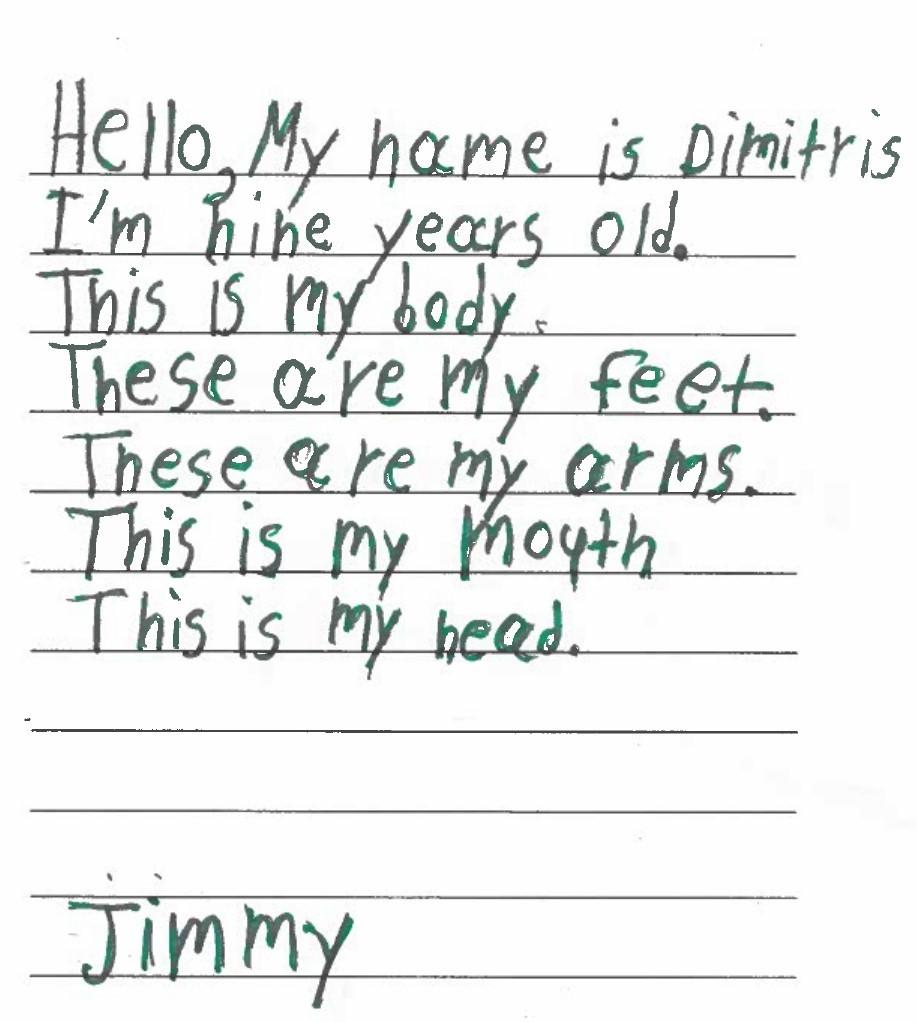 Hello, My name is Dimitris
I'm nine years old.
This is my body.
These are my feet.
These are my arms.
This is my moyth
This is my head.
Jimmy